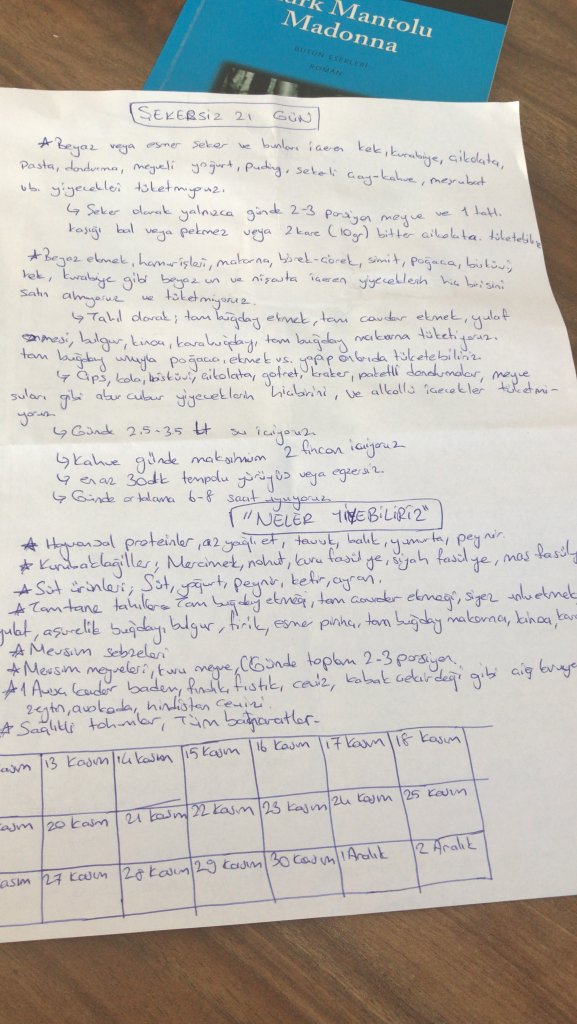 Kürk Mantolu
Madonna
BÜTÜN ESERLERİ
ROMAN
ŞEKERSİZ 21 GÜN
★ Beyaz veya esmer şeker ve bunları içeren kek, kurabiye, çikolata,
pasta, dondurma, meyveli yoğurt, puding, şekerli çay-kahve, meşrubat
vb. yiyecekleri tüketmiyoruz.
↳ Şeker olarak yalnızca günde 2-3 porsiyon meyve ve 1 tatlı
kaşığı bal veya pekmez veya 2 kare (10gr) bitter çikolata tüketebiliriz
★ Beyaz ekmek, hamurişleri, makarna, börek-çörek, simit, poğaça, bisküvi,
kek, kurabiye gibi beyaz un ve nişasta içeren yiyeceklerin hiç birisini
satın almıyoruz ve tüketmiyoruz.
↳ Tahıl olarak; tam buğday ekmek, tam çavdar ekmek, yulaf
ezmesi, bulgur, kinoa, karabuğday, tam buğday makarna tüketiyoruz.
tam buğday unuyla poğaça, ekmek vs. yapıp onları da tüketebiliriz.
↳ Cips, kola, bisküvi, çikolata, gofret, kraker, paketli dondurmalar, meyve
suları gibi abur cubur yiyeceklerin hiçbirini, ve alkollü içecekler tüketmi-
yoruz
↳ Günde 2.5-3.5 lt su içiyoruz
↳ Kahve günde maksimum 2 fincan içiyoruz
↳ en az 30dk tempolu yürüyüş veya egzersiz.
↳ Günde ortalama 6-8 saat uyuyoruz
"NELER YİYEBİLİRİZ"
★ Hayvansal proteinler, az yağlı et, tavuk, balık, yumurta, peynir.
★ Kurubaklagiller; Mercimek, nohut, kuru fasülye, siyah fasülye, maş fasülye
★ Süt ürünleri; Süt, yoğurt, peynir, kefir, ayran.
★ Tam tane tahıllar; Tam buğday ekmeği, tam çavdar ekmeği, siyez unlu ekmek
yulaf, aşurelik buğday, bulgur, firik, esmer pirinç, tam buğday makarna, kinoa, kara
★ Mevsim sebzeleri
★ Mevsim meyveleri, kuru meyve, (Günde toplam 2-3 porsiyon.
★ 1 Avuç kadar badem, fındık, fıstık, ceviz, kabak çekirdeği gibi çiğ kuruye
zeytin, avokado, hindistan cevizi.
★ Sağlıklı tohumlar, Tüm baharatlar-
asım 13 Kasım 14 Kasım 15 Kasım 16 Kasım 17 Kasım 18 Kasım
asım 20 Kasım 21 Kasım 22 Kasım 23 Kasım 24 Kasım 25 Kasım
asım 27 Kasım 28 Kasım 29 Kasım 30 Kasım 1 Aralık 2 Aralık